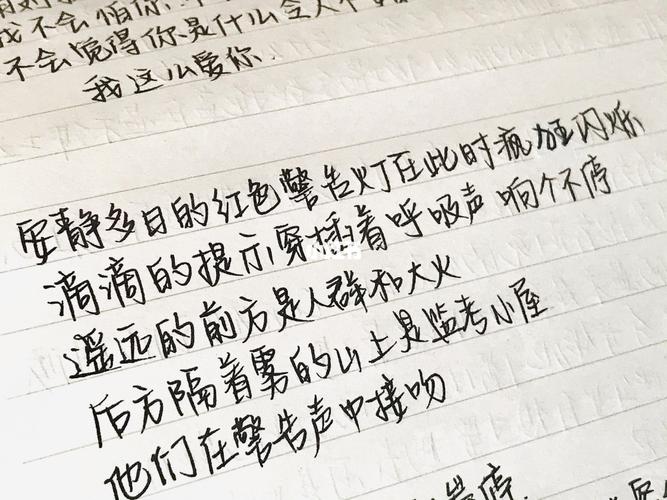 我不会怕你、不
不会觉得你是什么令人不
我这么爱你.
安静多日的红色警告灯在此时疯狂闪烁
滴滴的提示穿插着呼吸声响个不停
遥远的前方是人群和大火
后方隔着雾的山上是监考小屋
他们在警告声中接吻
小红书